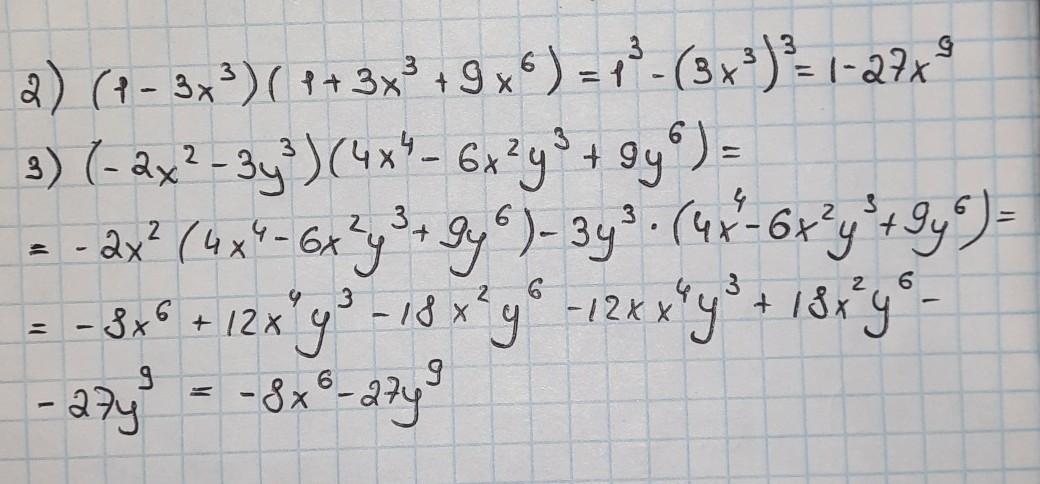 2) (1 - 3x³)(1 + 3x³ + 9x⁶) = 1³ - (3x³)³ = 1 - 27x⁹
3) (-2x² - 3y³)(4x⁴ - 6x²y³ + 9y⁶) =
= -2x² (4x⁴ - 6x²y³ + 9y⁶) - 3y³ · (4x⁴ - 6x²y³ + 9y⁶) =
= -8x⁶ + 12x⁴y³ - 18x²y⁶ - 12xx⁴y³ + 18x²y⁶ -
- 27y⁹ = -8x⁶ - 27y⁹